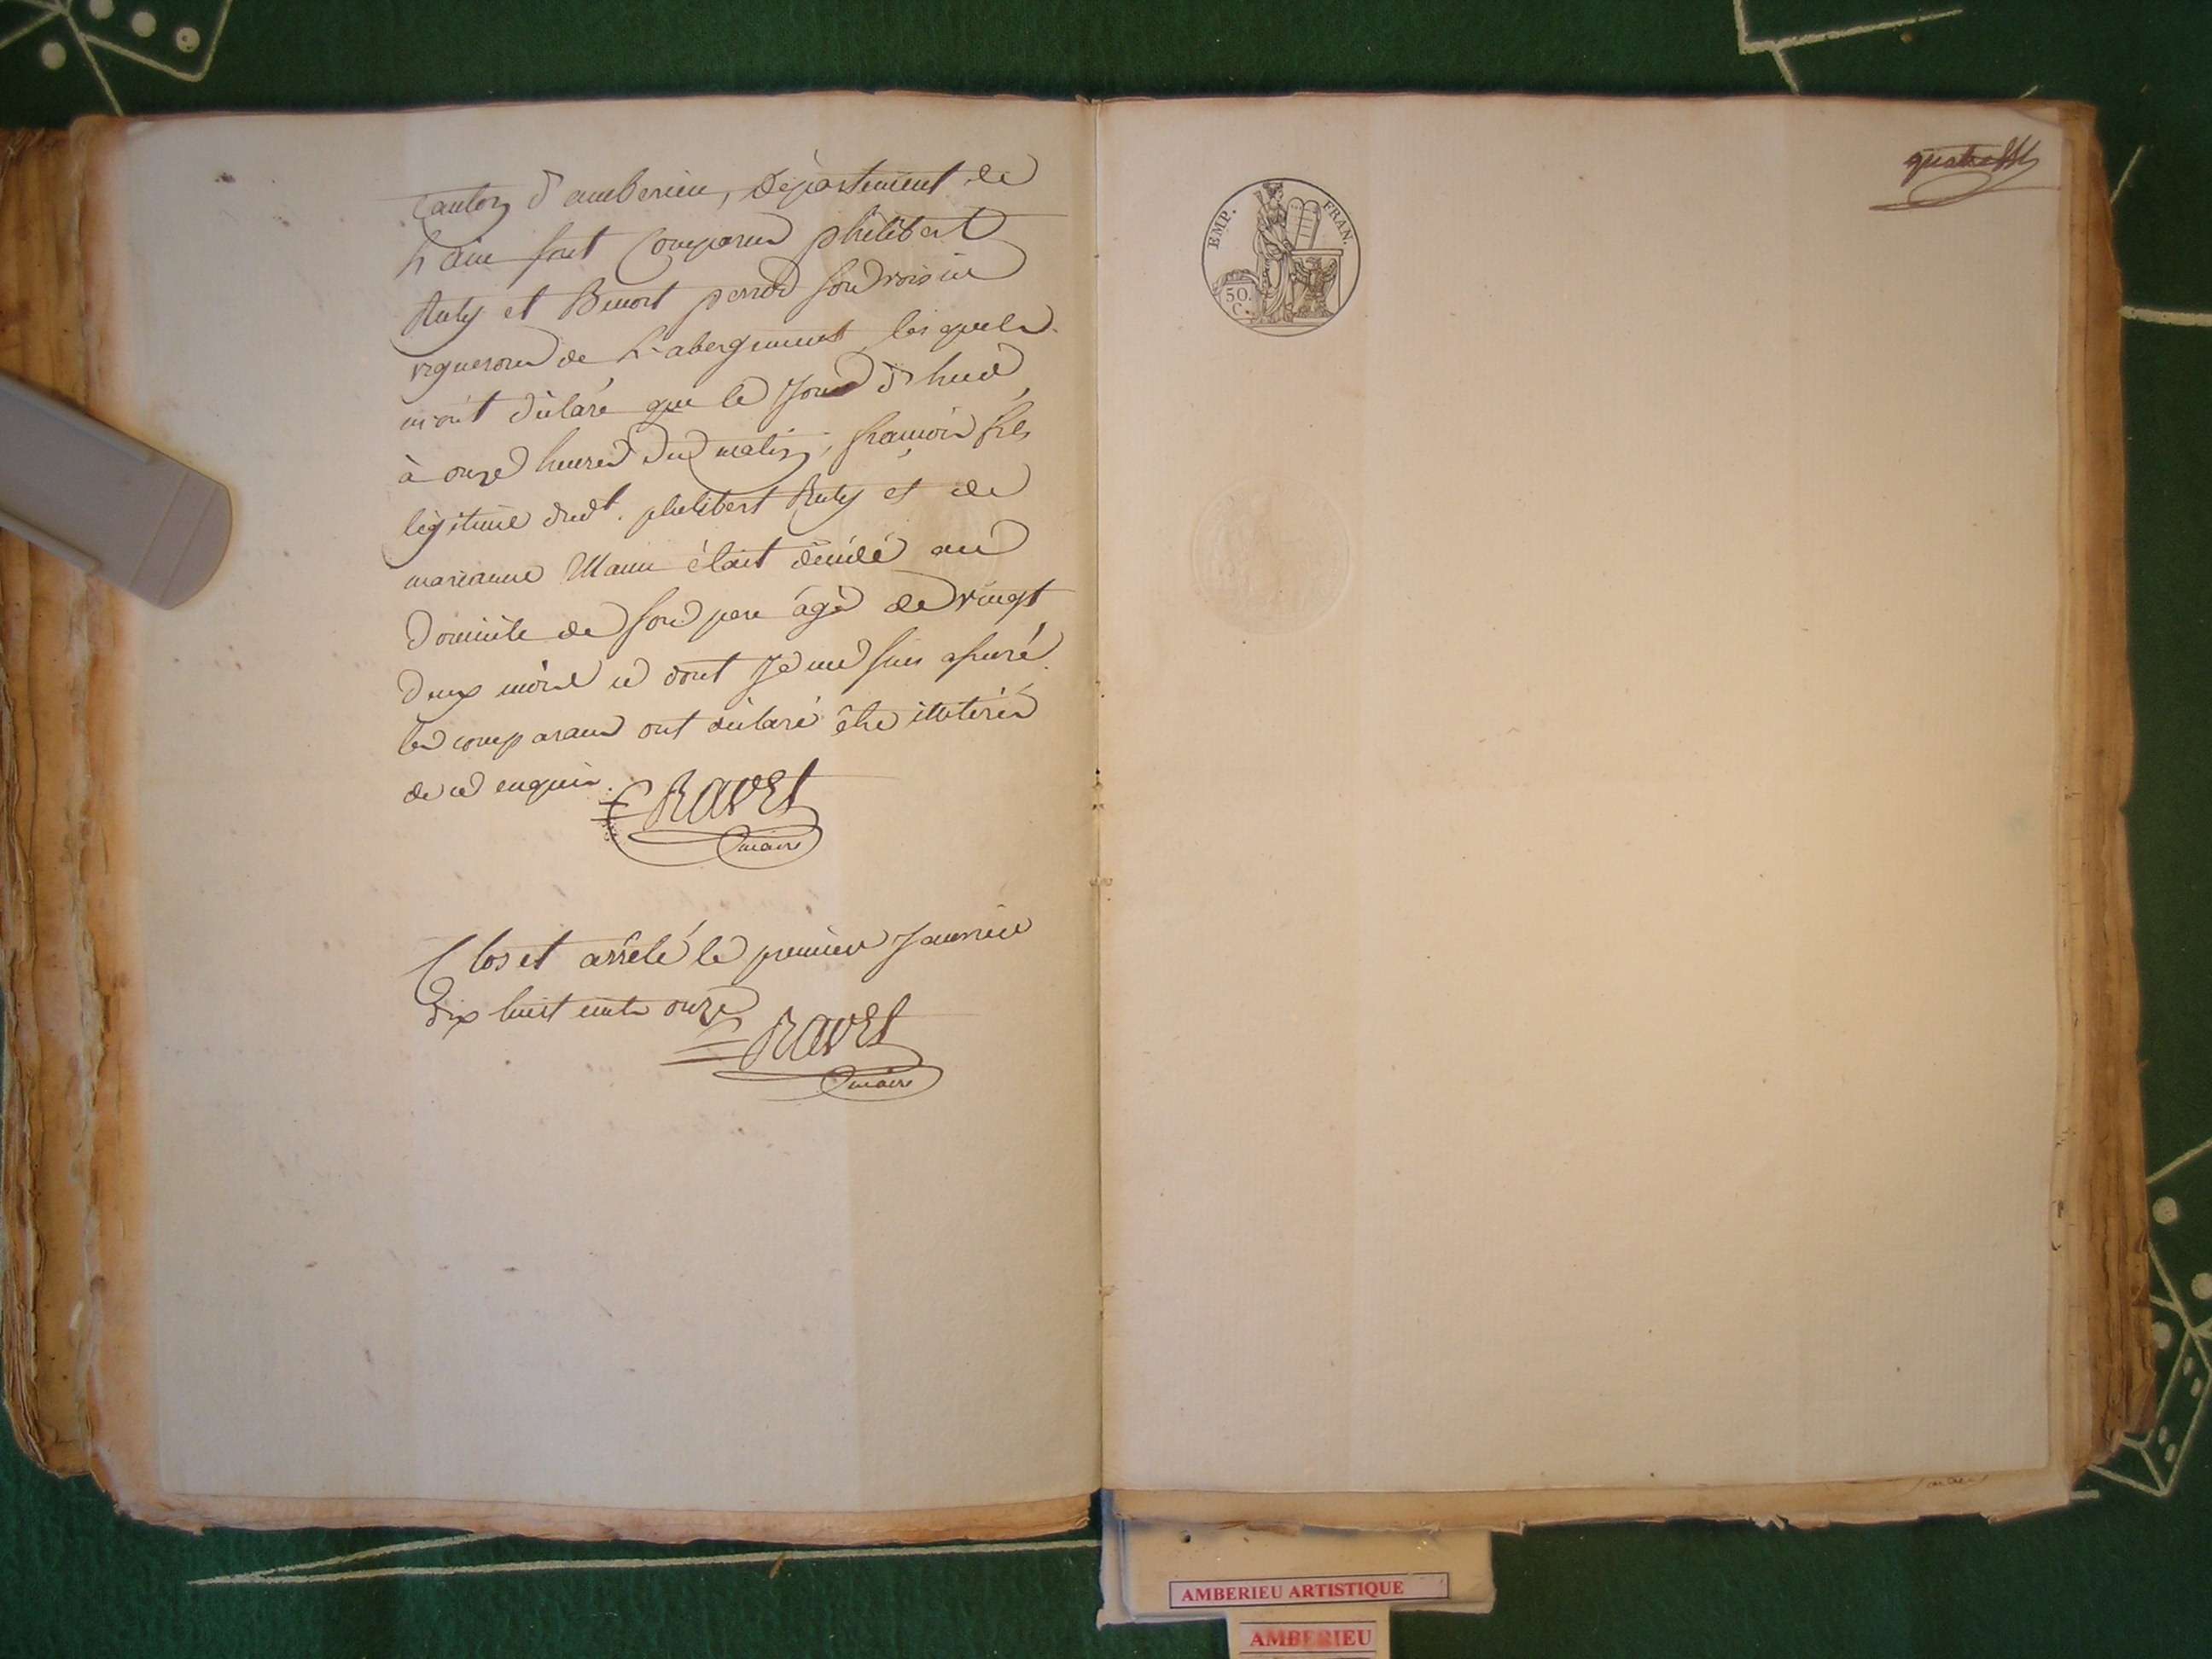 Canton d'amberieu, Département de
L'ain sont Comparus philibert
Ruty et Benoit perrod son voisin
vignerons de L'abergement, lesquels
m'ont déclaré que le Jour d'hui
à onze heures du matin, françois fils
légitime dudt. philibert Ruty et de
marianne était décédé au
Domicile de son pere âgé de vingt
deux mois ce dont Je me suis assuré.
les comparans ont déclaré être illiterés
de ce enquis. RAVET
maire
Clos et arrêté le premier Janvier
dix huit cents onze RAVET
maire
EMP. FRAN.
50.
C.
AMBERIEU ARTISTIQUE
AMBERIEU